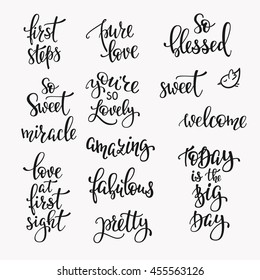 first
steps
pure
love
So
blessed
So
Sweet
miracle
you're
so
Lovely
sweet
welcome
amazing
love
at
first
sight
fabulous
pretty
TODAY
is the
BIG
Day
455563126